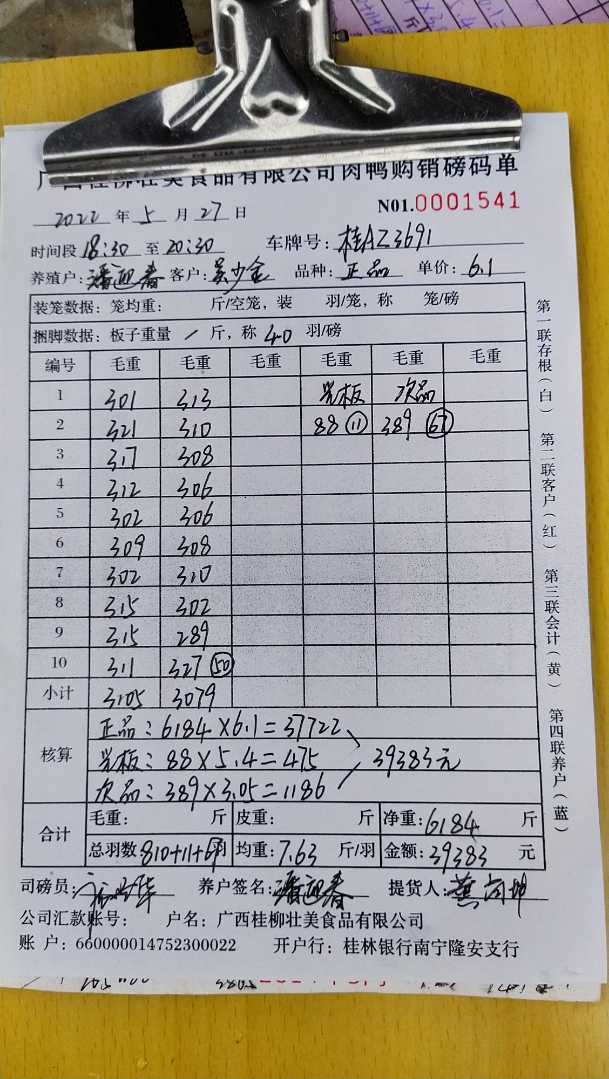 广西桂柳壮美食品有限公司肉鸭购销磅码单
2022 年 5 月 27 日 N01.0001541
时间段 18:30 至 20:30 车牌号: 桂AZ3691
养殖户: 潘迎春 客户: 吴少金 品种: 正品 单价: 6.1
装笼数据: 笼均重: 斤/空笼, 装 羽/笼, 称 笼/磅
捆脚数据: 板子重量 / 斤, 称 40 羽/磅
编号 毛重 毛重 毛重 毛重 毛重 毛重
1 301 313 光板 次品
2 321 310 88 ⑪ 389 67
3 317 308
4 312 306
5 302 306
6 309 308
7 302 310
8 315 302
9 315 289
10 311 327 ㊿
小计 3105 3079
核算
正品: 6184×6.1=37722
光板: 88×5.4=475
次品: 389×3.05=1186
39383元
合计
毛重: 斤 皮重: 斤 净重: 6184 斤
总羽数 810+11+67 均重: 7.63 斤/羽 金额: 39383 元
司磅员: 养户签名: 潘迎春 提货人:
公司汇款账号: 户名: 广西桂柳壮美食品有限公司
账 户: 660000014752300022 开户行: 桂林银行南宁隆安支行
第一联存根(白) 第二联客户(红) 第三联会计(黄) 第四联养户(蓝)